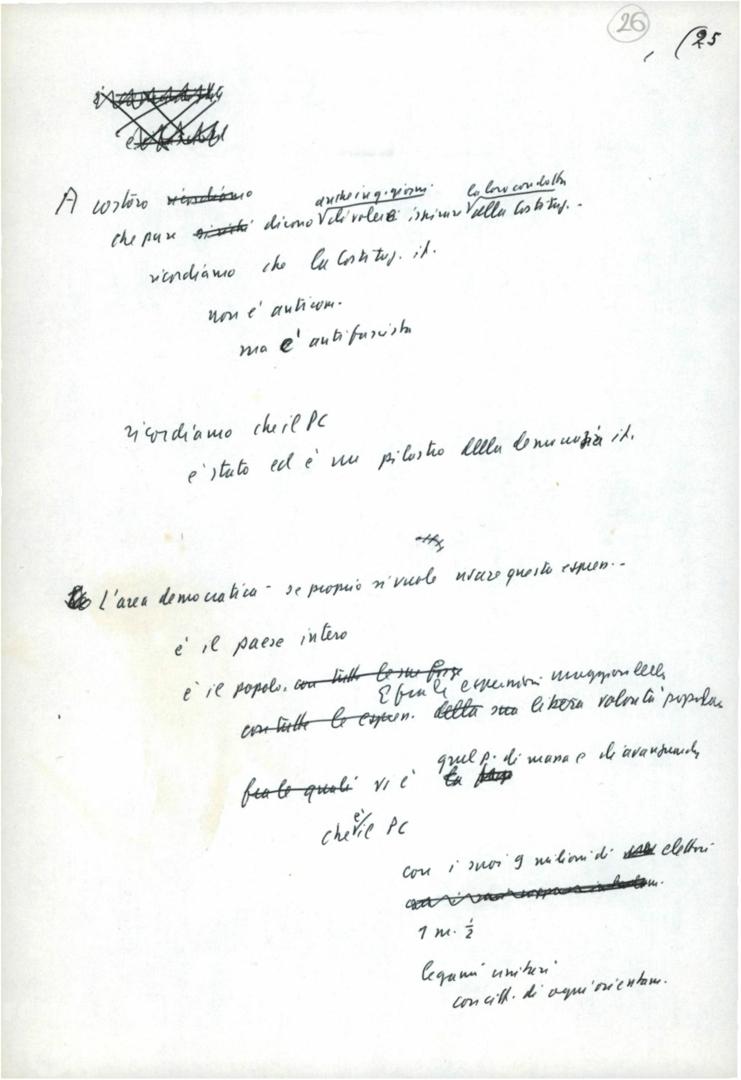 26
(25
A costoro ricordiamo
anche in q. giorni
la loro condotta
che pure dicono di voler ispirare alla Costituz. -
ricordiamo che la Costituz. it.
non è anticom.
ma è antifascista
ricordiamo che il PC
è stato ed è un pilastro della democrazia it.
L'area democratica - se proprio si vuole usare questa espres. -
è il paese intero
è il popolo. con tutte le sue forze
E fra le espressioni maggiori della
con tutte le espres. della sua libera volontà popolare
quel p. di massa e di avanguardia
fra le quali vi è la
che è il PC
con i suoi 9 milioni di elettori
1 m. ½
legami unitari
con citt. di ogni orientam.